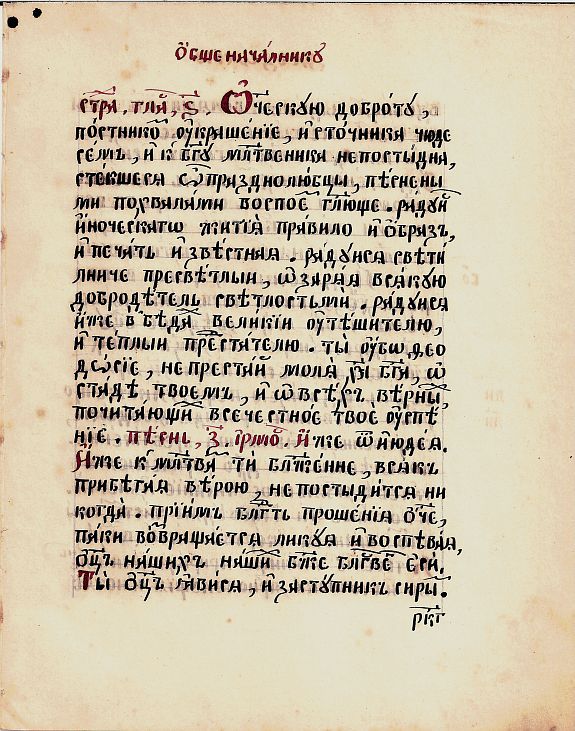 Ѻ҆бщенача́лникꙋ
стр҃а, гла҃, ѕ҃. Ѻ҆ч҃ескꙋю добро́тꙋ,
по́стникѡ ᲂу҆краше́нїе, и҆ сто́чника чюде
се́мъ, и҆ к бг҃ꙋ мл҃твеника непосты́дна,
сте́кшеся ѡ҆ празднолю́бцы, пѣ́снены
ми похвала́ми воспое́ гл҃юще. ра́дꙋй
и҆но́ческагѡ житїѧ̀ пра́вило и ѻ҆́бразъ,
и҆ печа́ть и҆звѣ́стнаѧ. ра́дꙋисѧ свѣти́
лниче пресвѣ́тлыи, ѡ҆зараѧ́ѧ всѧ́кꙋю
добродѣ́тель свѣ́тлостьми. ра́дꙋисѧ
и҆́же в бѣда́ вели́кїи ᲂу҆тѣ́шителю,
и҆ те́плыи пре́стателю. ты̀ ᲂу҆́бѡ ѳео
до́сїе, не преста́й молѧ̀ хрⷭ҇та̀ бг҃а, ѡ҆
ста́дѣ твое́мъ, и҆ ѡ҆ все́хъ вѣ́рны,
почита́ющи всече́стно́е твоѐ ᲂу҆спе́
нїе. пѣ́снь, з҃. і҆рмо́. И҆́же ѿ і҆ю҆де́ѧ.
И҆́же к мл҃твѣ тѝ бл҃же́нне, всѧ́къ
прибѣ́гаѧ вѣ́рою, не постыди́тсѧ ни
когда̀. прїи́мъ бл҃гть проше́нїѧ ѻ҆́ч҃е,
па́ки во́звраща́ется ликꙋ́ѧ и҆ воспѣва́ѧ,
ѻ҆ц҃ъ на́шихъ на́ши бж҃е бл҃гве́ е҆сѝ.
Ты̀ ѻ҆ц҃ъ ꙗ҆ви́сѧ, и҆ засту́пникъ си́ры.
рк҃г